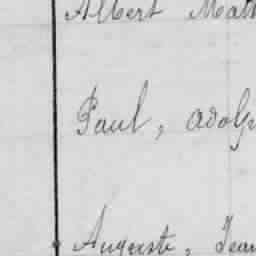 Albert Mat
Paul, adolp
Auguste, Jean